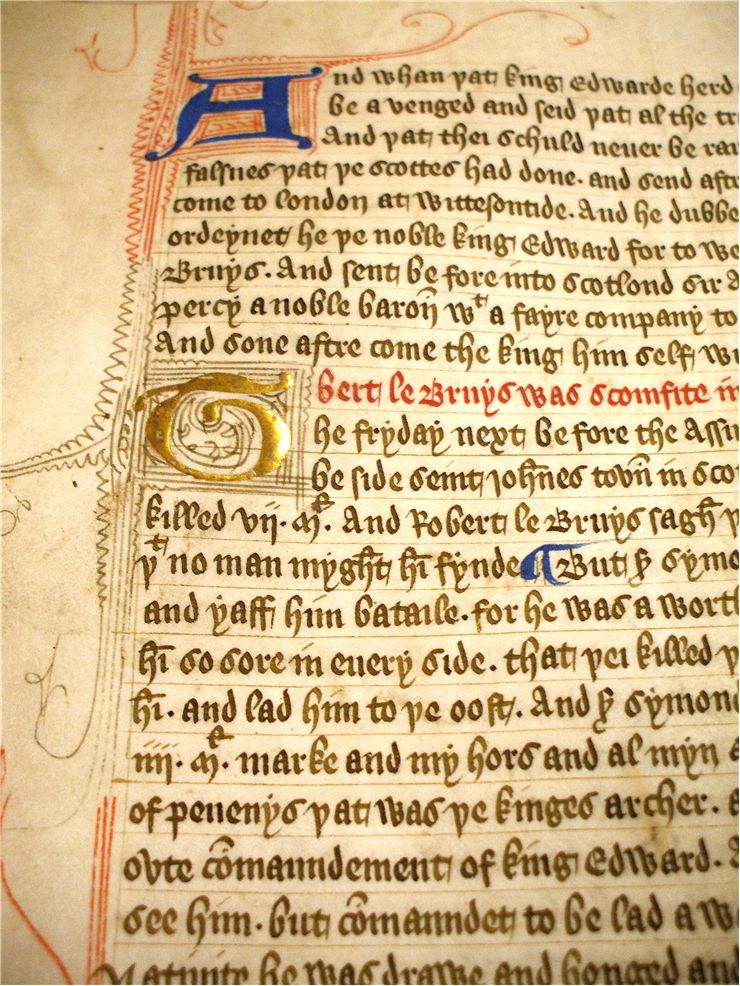 And whan þat king Edwarde herd
be a venged and seid þat al the tr
And þat thei schuld never be ra
falsnes þat þe scottes had done. and send aftr
come to london at wittesontide. And he dubbe
ordeynet he þe noble king Edward for to we
Bruys. And sent be fore into scotlond sir A
percy a noble baron̄ wᵗ a fayre company to
And sone aftre come the king him self wi
bert le Bruys was scomfite in
The fryday next be fore the Assu
be side seint joh̄nes tovn̄ in sco
killed vij. Mͬ. And Robert le Bruys sagh̄ þ
þᵗ no man mygh̄t h̄i fynde ¶ But sͬ symo
and yaff him bataile. for he was a worth
h̄i so sore in euery side. that þei killed þ
h̄i. and lad him to þe oost. And sͬ symond
iiij. Mͬ. marke and my hors and al myn a
of peuenys þat was þe kinges archer. a
ovte cōmaundement of king Edward. A
see him. but cōmanndet to be lad a w
Natiuite he was drawe and honged and